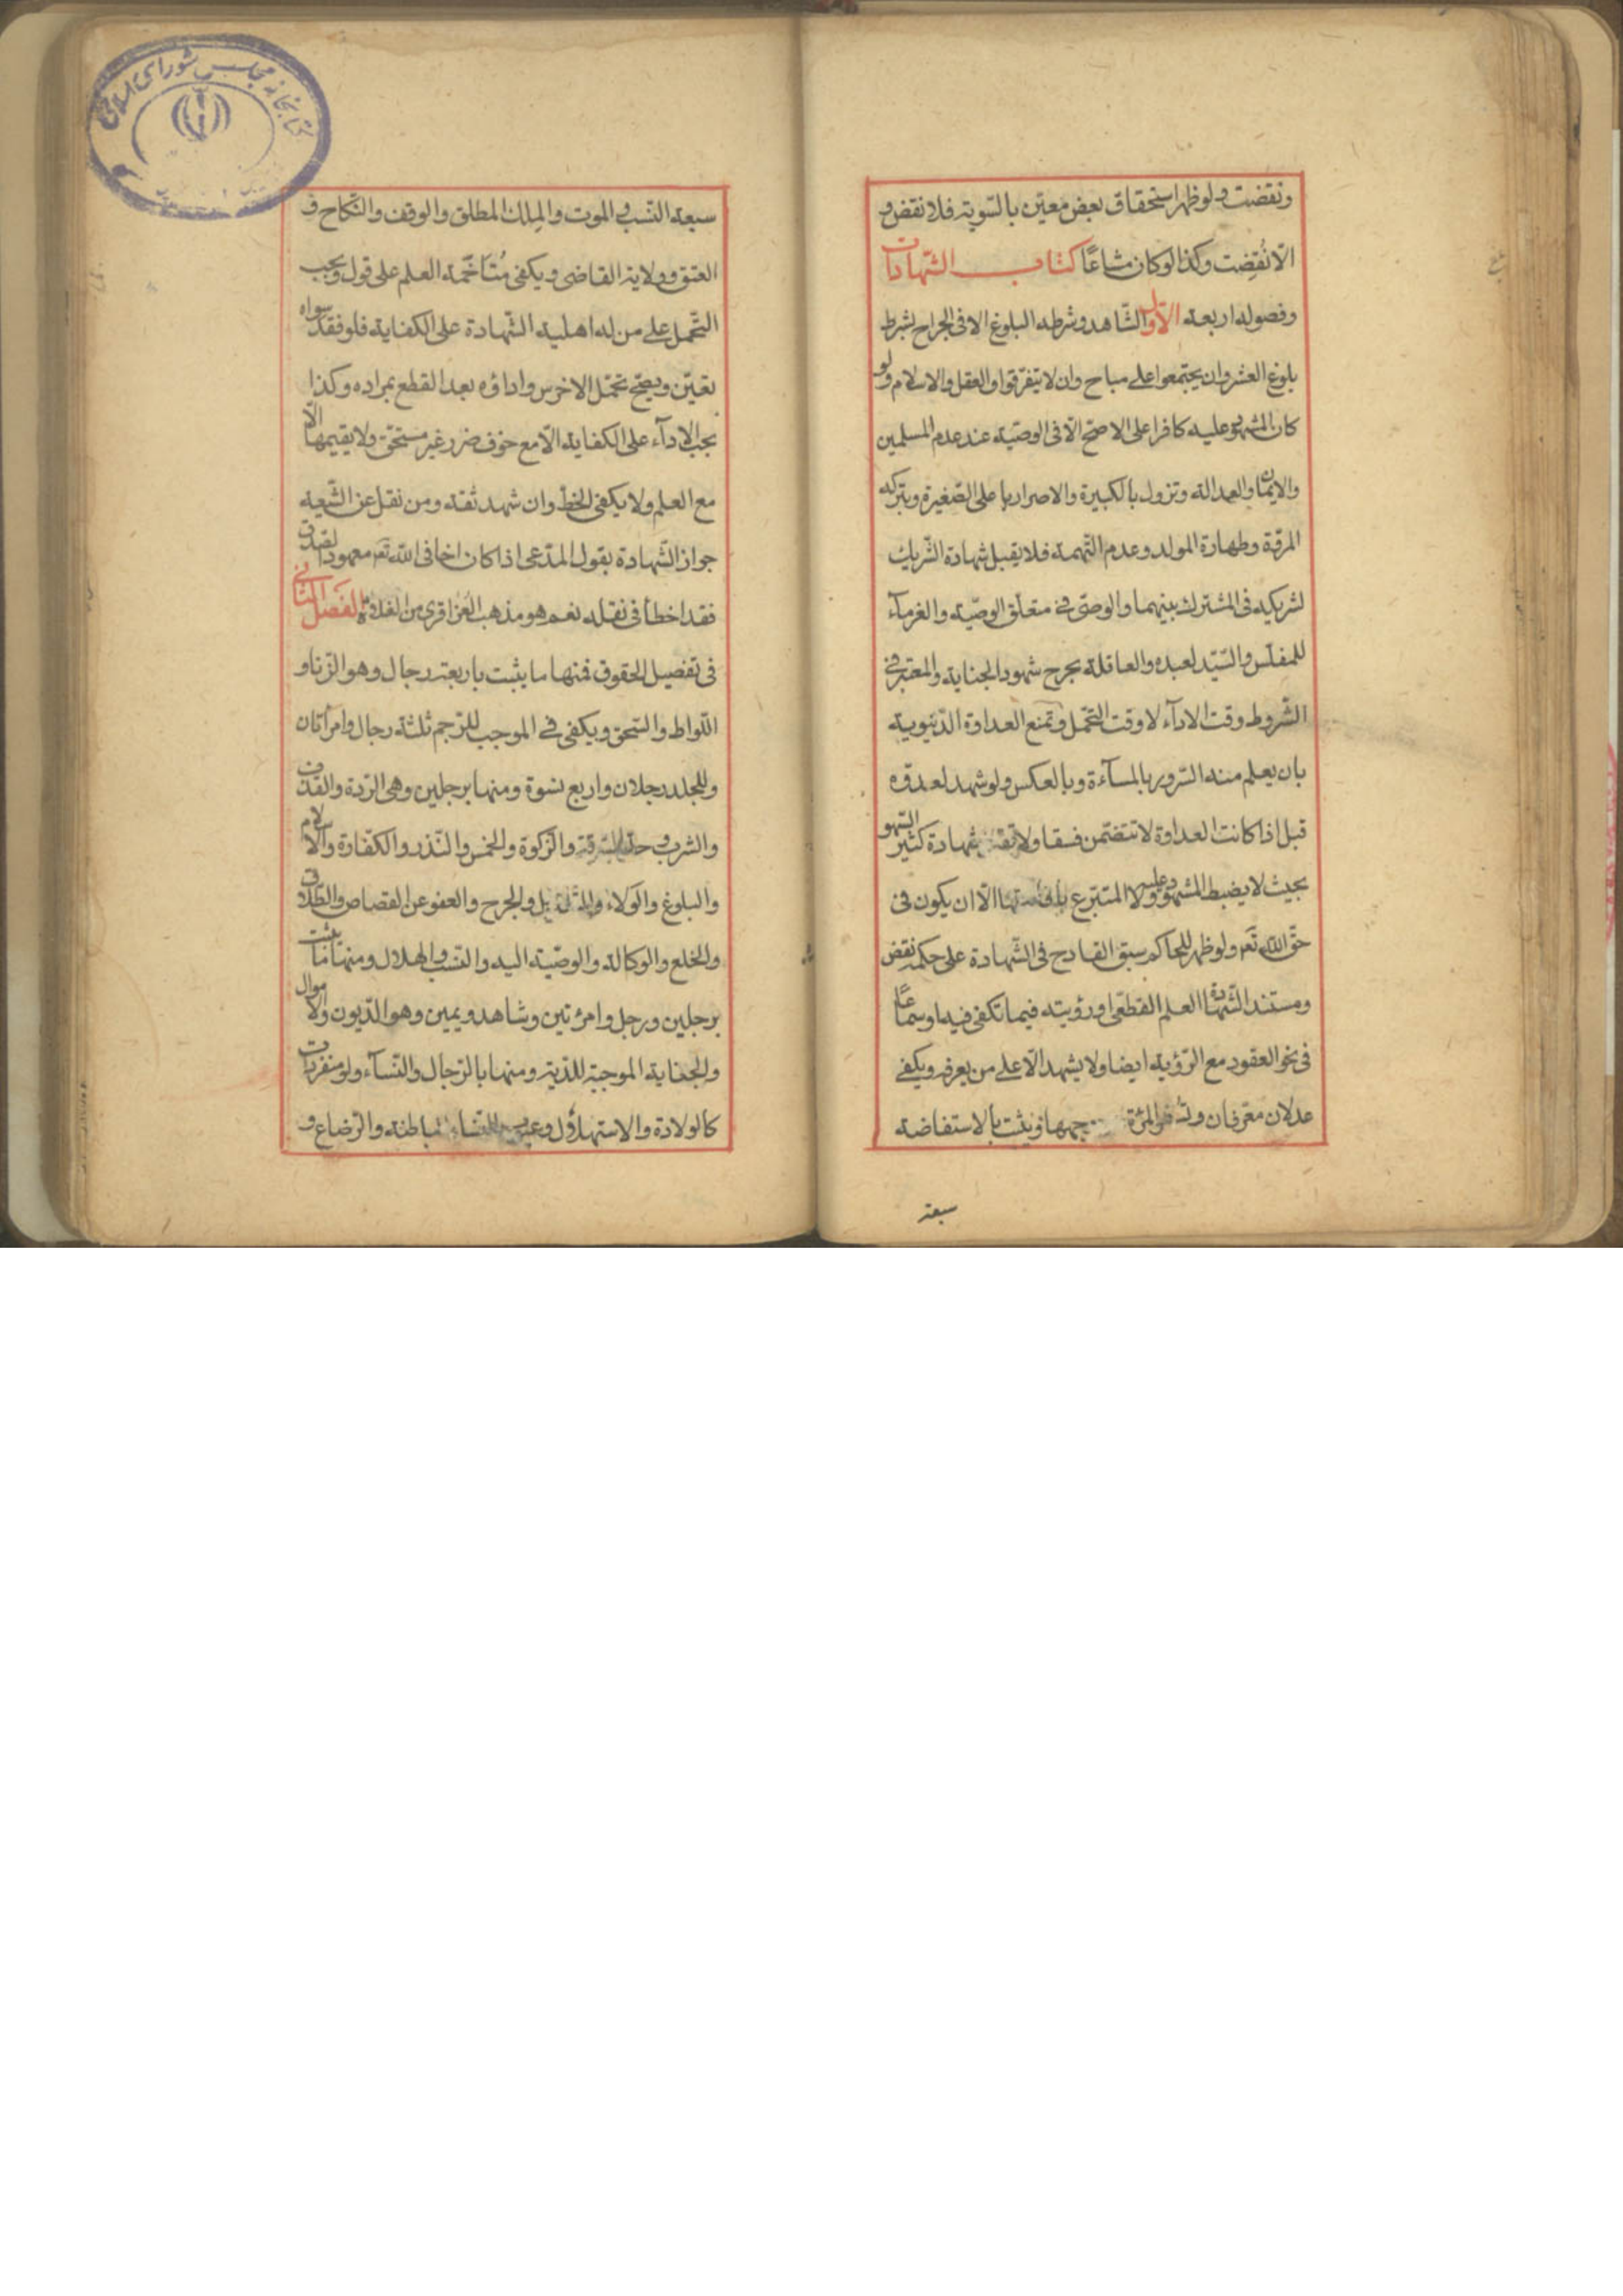 ونقضت ولو ظهر استحقاق بعض معين بالسوية فلا نقض و
الا نُقِضت وكذا لو كان مشاعًا كتاب الشهادات
وفصوله اربعة الاول الشاهد وشرطه البلوغ الا فى الجراح بشرط
بلوغ العشر وان يجتمعوا على مباح وان لا يتفرقوا والعقل والاسلام ولو
كان المشهود عليه كافرا على الاصح الا فى الوصية عند عدم المسلمين
والايمان والعدالة وتزول بالكبيرة والاصرار على الصغيرة وبترك
المروة وطهارة المولد وعدم التهمة فلا يقبل شهادة الشريك
لشريكه فى المشترك بينهما والوصى فى متعلق الوصية والغرمآء
للمفلس والسيد لعبده والعاقلة بجرح شهود الجناية والمعتبر فى
الشروط وقت الادآء لا وقت التحمل وتمنع العداوة الدنيوية
بان يعلم منه السرور بالمسآءة وبالعكس ولو شهد لعدوه
قبل اذا كانت العداوة لا تتضمن فسقا ولا تقبل شهادة كثير السهو
بحيث لا يضبط المشهود عليه ولا المتبرع باقامتها الا ان يكون فى
حق الله تع ولو ظهر للحاكم سبق القادح فى الشهادة على حكمه نقض
ومستند الشهادة العلم القطعى او رؤيته فيما تكفى فيه او سماعًا
فى نحو العقود مع الرؤية ايضا ولا يشهد الا على من يعرفه ويكفى
عدلان معرفان وتسفر المرئة وجهها ويثبت بالاستفاضة
سبعة
سبعة النسب والموت والمِلك المطلق والوقف والنكاح و
العتق وولاية القاضى ويكفى مُتَاخَمة العلم على قول ويجب
التحمل على من له اهلية الشهادة على الكفاية فلو فقد سواه
تعين ويصح تحمل الاخرس واداؤه بعد القطع بمراده وكذا
يجب الادآء على الكفاية الا مع خوف ضرر غير مستحق ولا يقيمها الا
مع العلم ولا يكفى الخط وان شهد ثقة ومن نقل عن الشيعة
جواز الشهادة بقول المدعى اذا كان اخا فى الله تع معهود الصدق
فقد اخطأ فى نقله نعم هو مذهب العزاقرى من الغلاة الفصل الثانى
فى تفصيل الحقوق فمنها ما يثبت باربعة رجال وهو الزنا و
اللواط والسحق ويكفى فى الموجب للرجم ثلثة رجال وامرأتان
وللجلد رجلان واربع نسوة ومنها برجلين وهى الردة والقذف
والشرب وحد السرقة والزكوة والخمس والنذر والكفارة والاسلام
والبلوغ والولاء والتعديل والجرح والعفو عن القصاص والطلاق
والخلع والوكالة والوصية اليه والنسب والهلال ومنها ما يثبت
برجلين ورجل وامرئتين وشاهد ويمين وهو الديون والاموال
والجناية الموجبة للدية ومنها بالرجال والنسآء ولو منفردات
كالولادة والاستهلال وعيوب النساء الباطنة والرضاع و
كتابخانه مجلس شوراى اسلامى